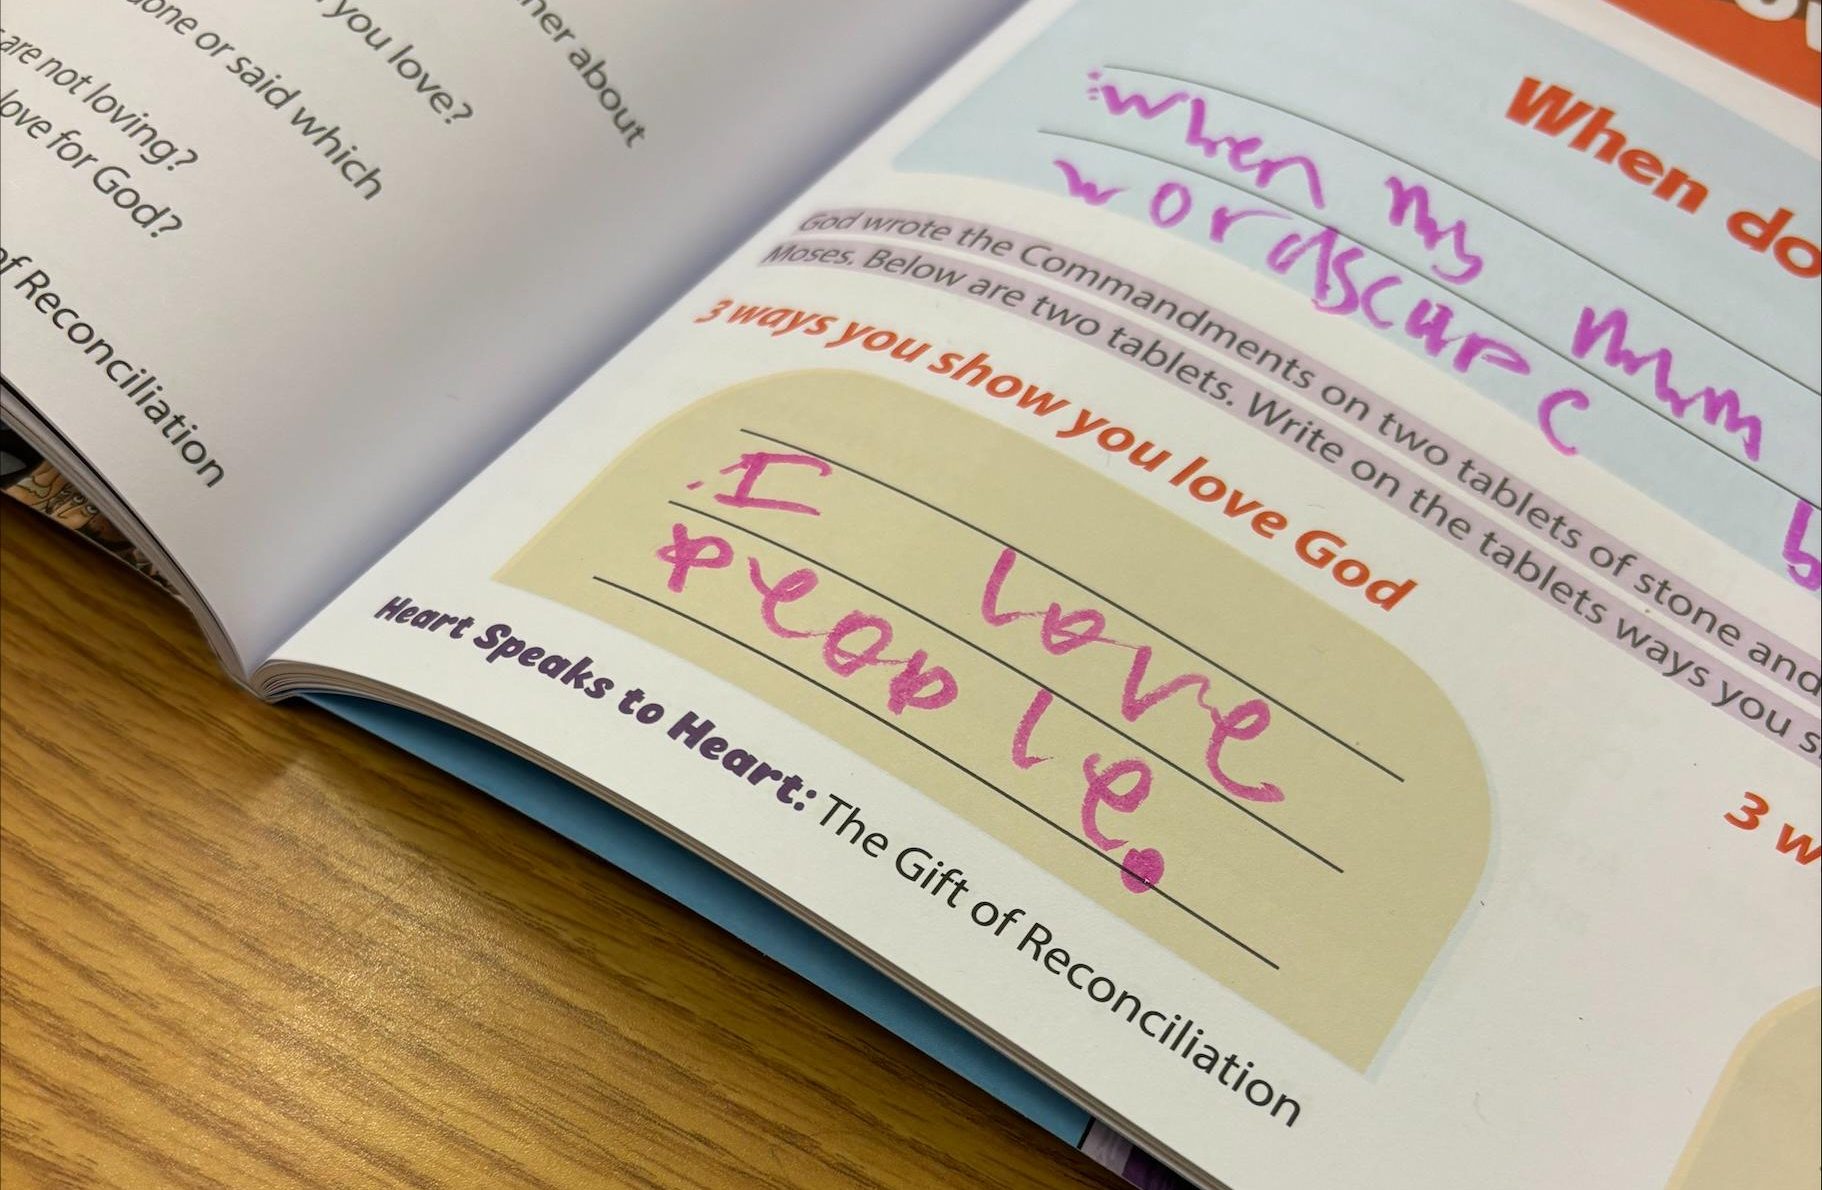 ner about
you love?
one or said which
are not loving?
love for God?
of Reconciliation
When do
when my mum
words
God wrote the Commandments on two tablets of stone and
Moses. Below are two tablets. Write on the tablets ways you s
3 ways you show you love God
I love
people.
3 w
Heart Speaks to Heart: The Gift of Reconciliation